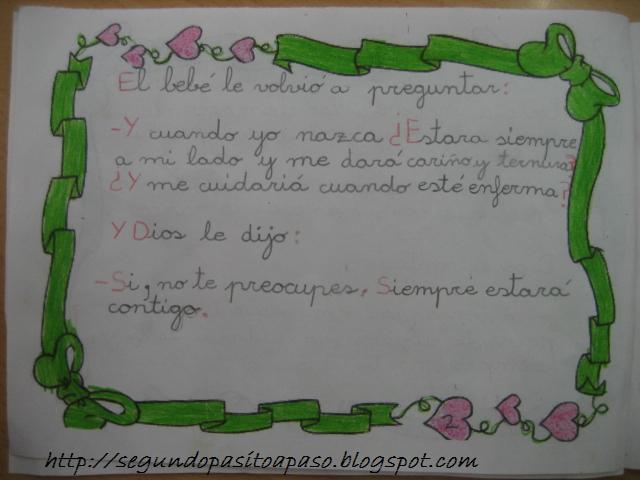 El bebé le volvió a preguntar:
-Y cuando yo nazca ¿Estara siempre
a mi lado y me dará cariño y ternura?
¿Y me cuidariá cuando esté enferma?
Y Dios le dijo:
-Si, no te preocupes. Siempre estará
contigo.
2
http://segundopasitoapaso.blogspot.com